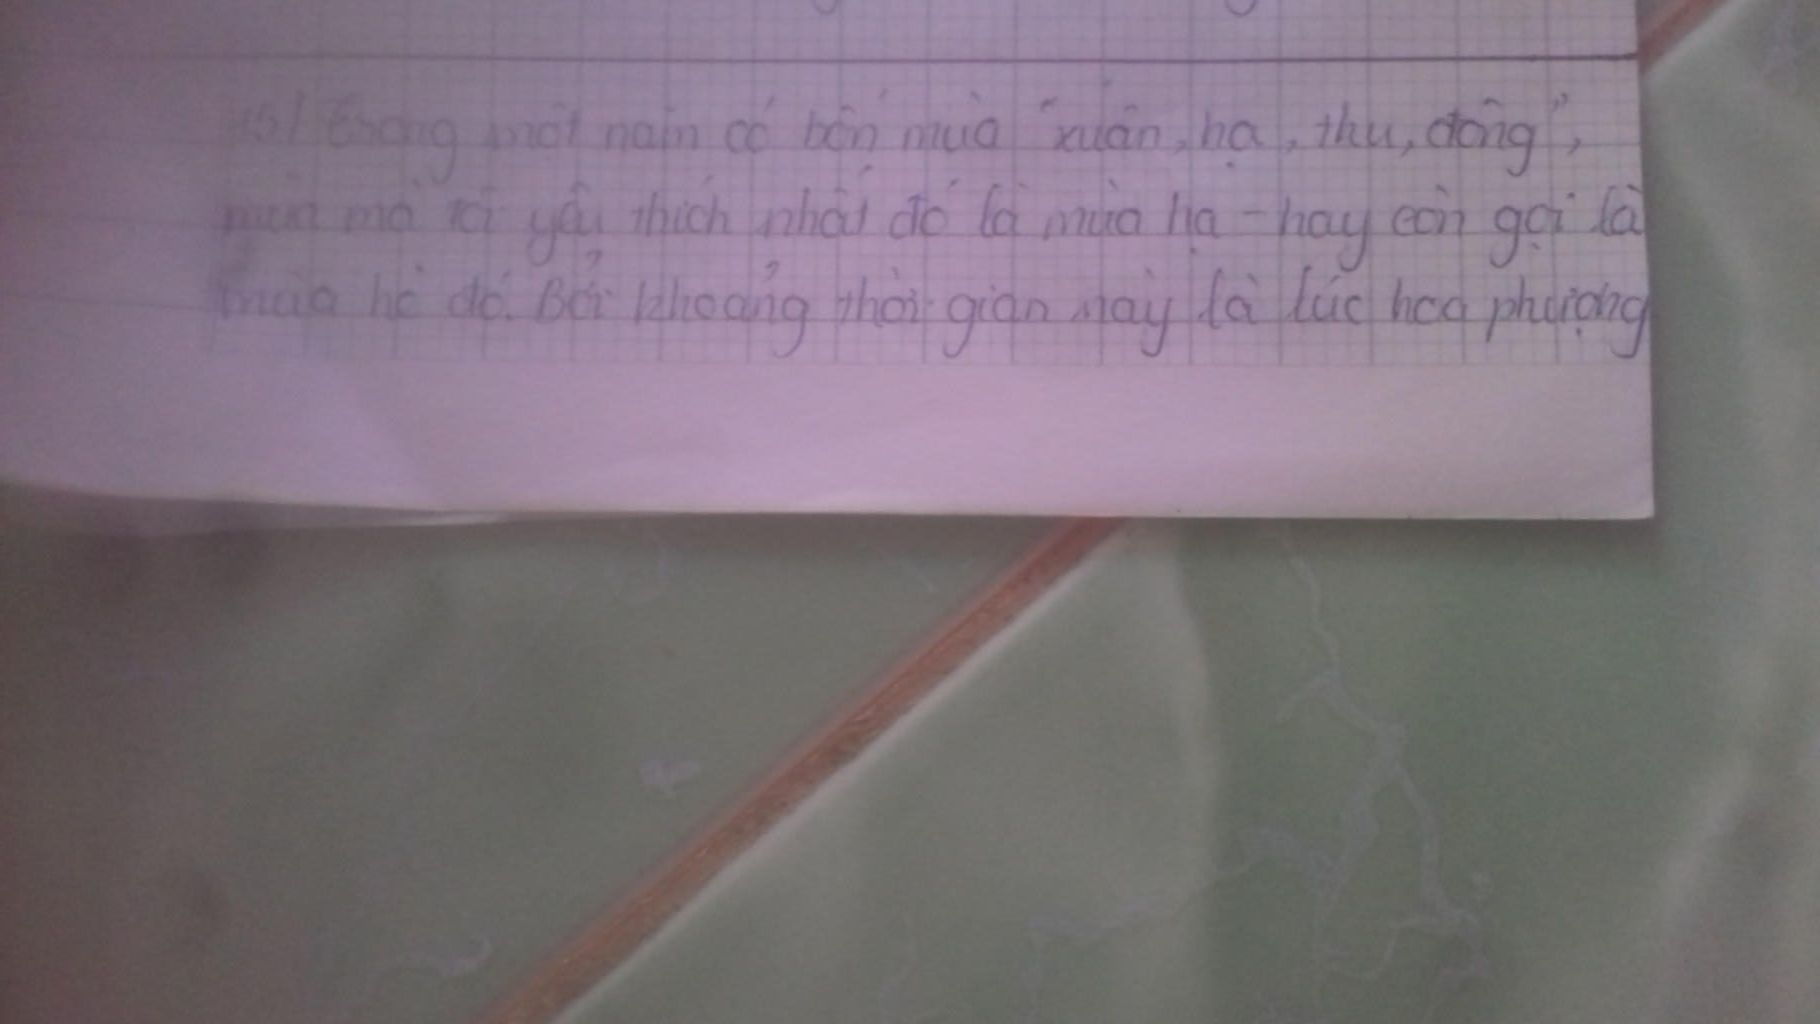 15/ Trong một năm có bốn mùa "xuân, hạ, thu, đông",
mùa mà tôi yêu thích nhất đó là mùa hạ - hay còn gọi là
mùa hè đó. Bởi khoảng thời gian này là lúc hoa phượng